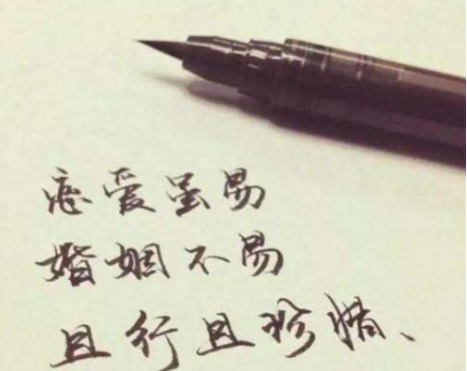 恋爱虽易
婚姻不易
且行且珍惜、